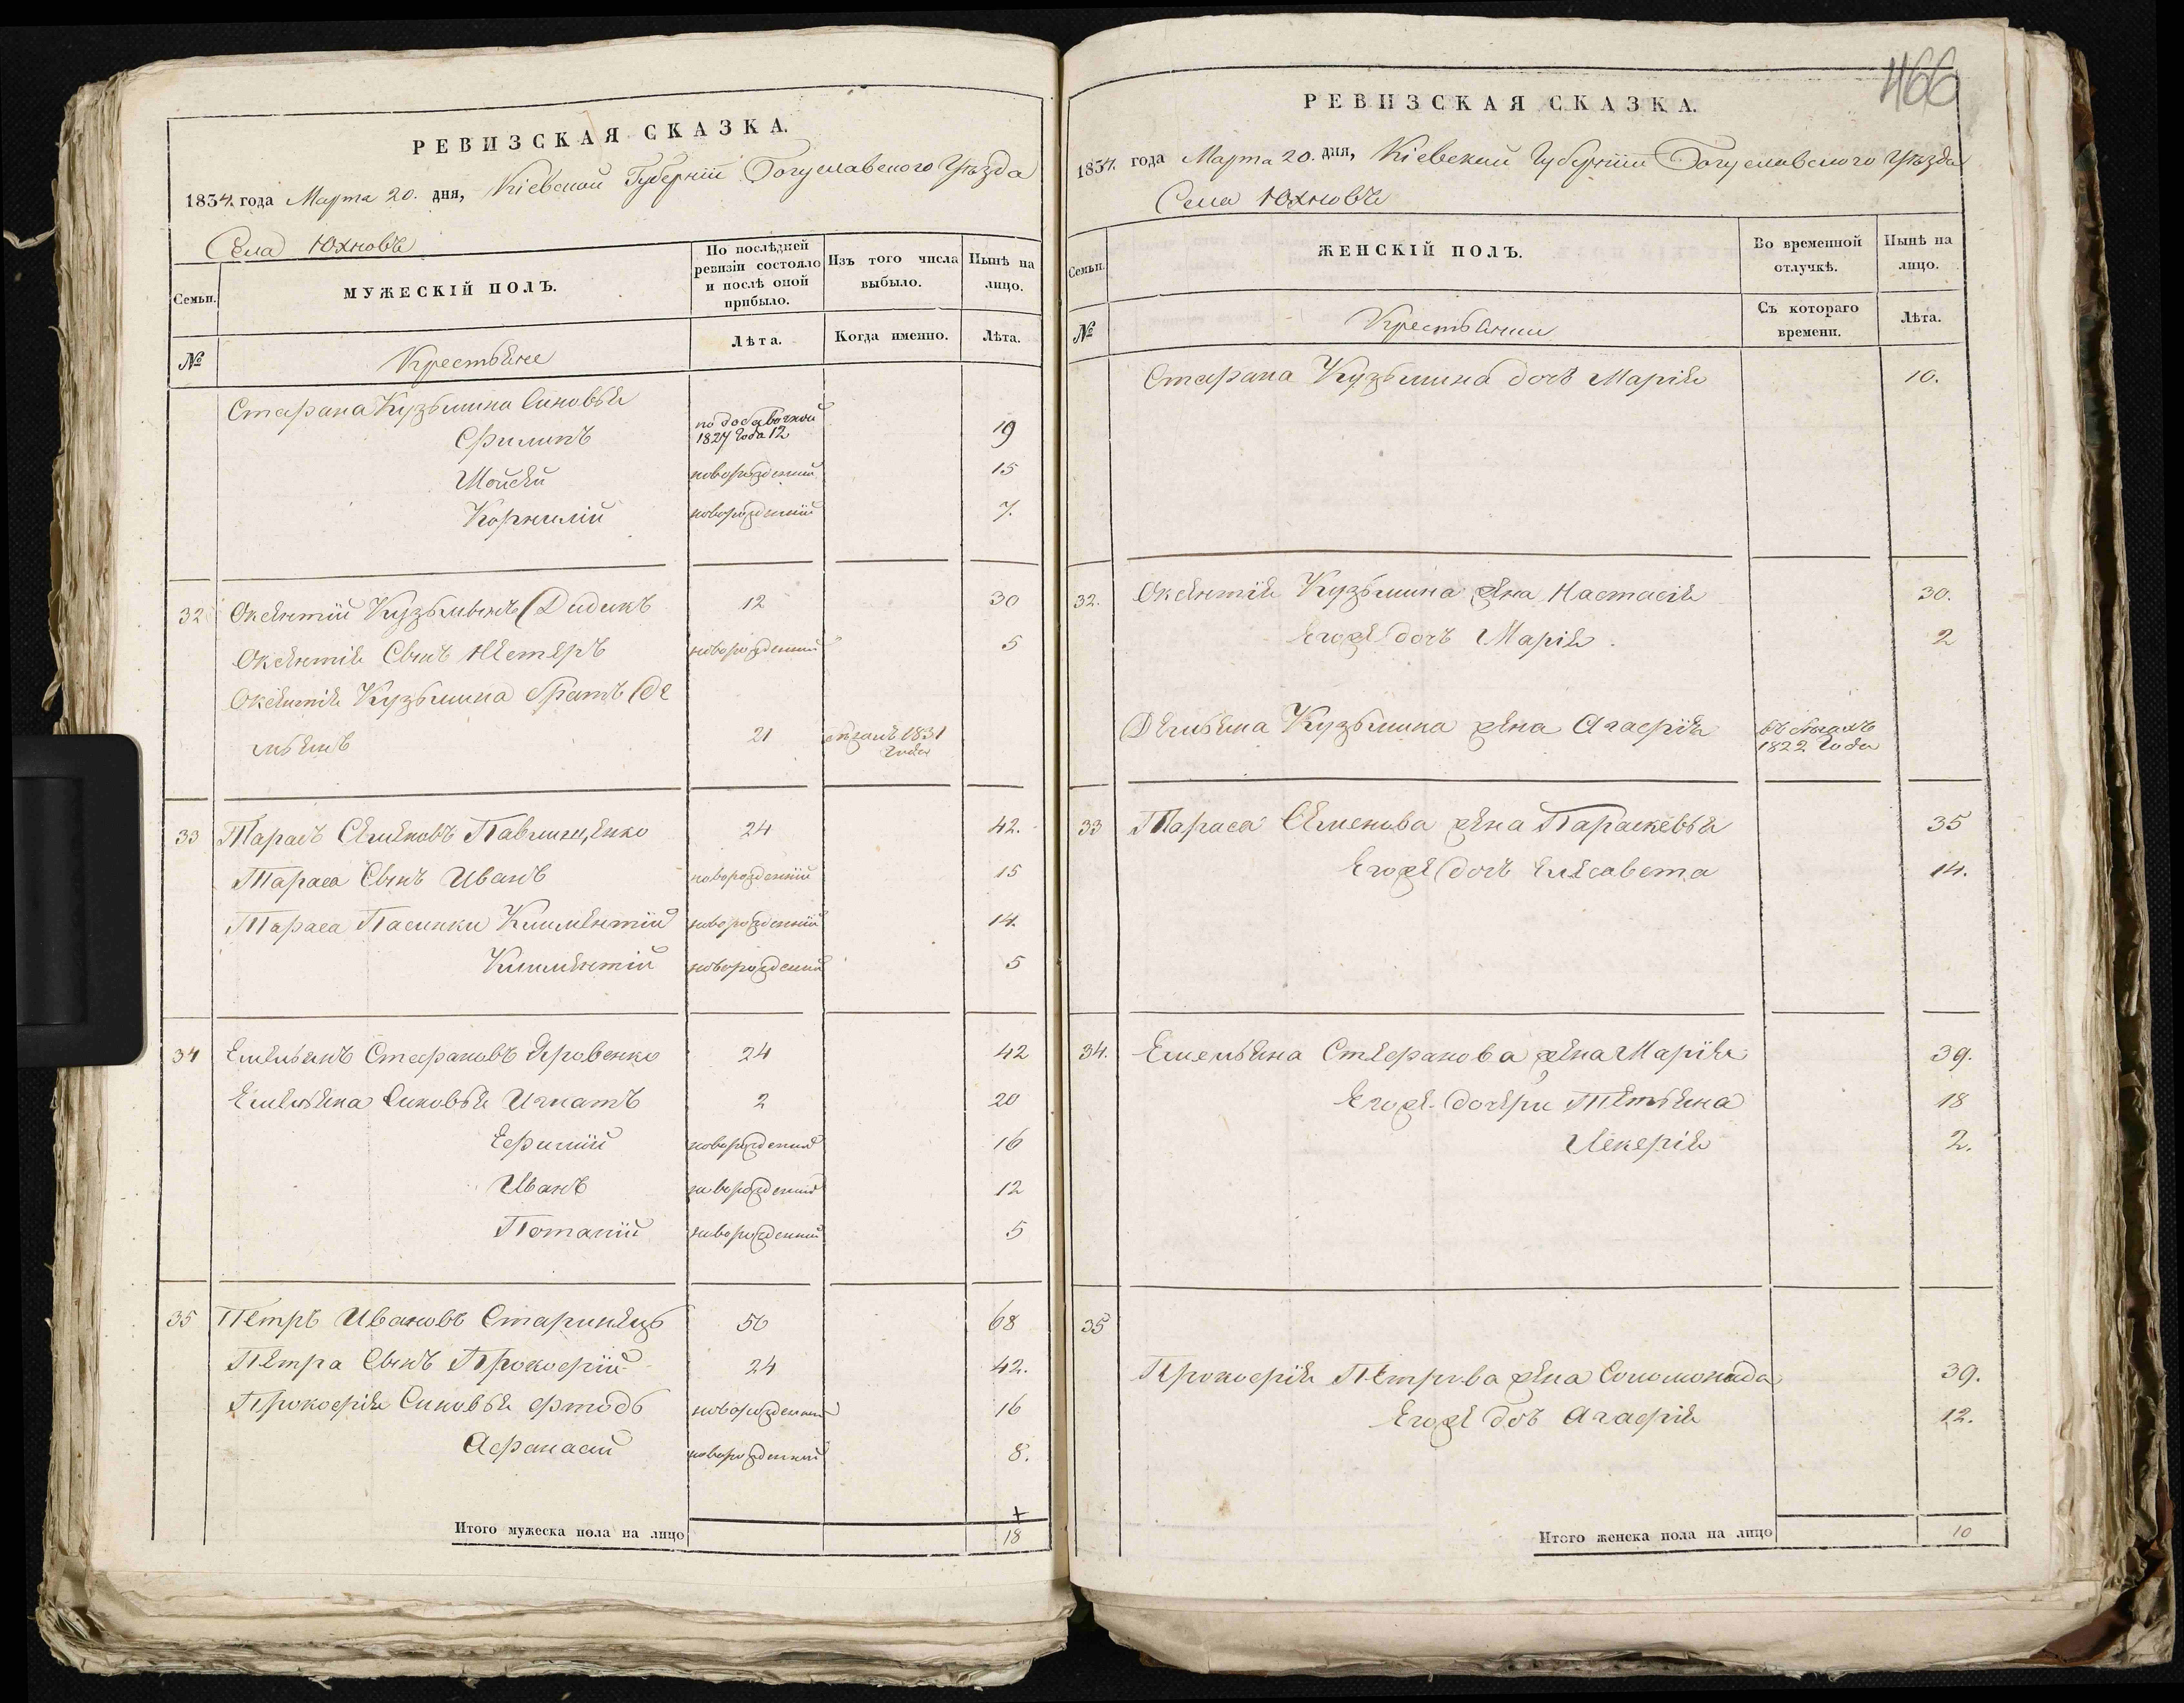 РЕВИЗСКАЯ СКАЗКА.
1834. года Марта 20. дня, Кіевской Губерніи Богуславского Уѣзда
Села Юхновъ
Семьи.
МУЖЕСКІЙ ПОЛЪ.
По послѣдней ревизіи состояло и послѣ оной прибыло.
Изъ того числа выбыло.
Нынѣ на лицо.
№
Крестьяне
Лѣта.
Когда именно.
Лѣта.
Стефана Кузьмина Сыновья
Филипъ по добавочной 1827 Года 12 19
Мойсей новорожденный 15
Корнилій новорожденный 7.
32 Оксентій Кузьминъ Дидикъ 12 30
Оксентія Сынъ Нестеръ новорожденный 5
Оксентія Кузьмина братъ Де
мьянъ 21 1831 Года
33 Тарасъ Семеновъ Павлиненко 24 42.
Тараса Сынъ Иванъ новорожденный 15
Тараса Пасинки Климентій новорожденный 14.
Климентій новорожденный 5
34 Емельянъ Стефановъ Яровенко 24 42
Емельяна Сыновья Игнатъ 2 20
Ефимій новорожденный 16
Иванъ новорожденный 12
Потапій новорожденный 5
35 Петръ Ивановъ Старинецъ 50 68
Петра Сынъ Прокофій 24 42.
Прокофія Сыновья Фтодъ новорожденный 16
Афанасій новорожденный 8.
+
Итого мужеска пола на лицо 18
466
РЕВИЗСКАЯ СКАЗКА.
1834. года Марта 20. дня, Кіевской Губерніи Богуславского Уѣзда
Села Юхновъ
Семьи.
ЖЕНСКІЙ ПОЛЪ.
Во временной отлучкѣ.
Нынѣ на лицо.
№
Крестьянки
Съ котораго времени.
Лѣта.
Стефана Кузьмина дочь Марія 10.
32. Оксентія Кузьмина жена Настасія 30.
Егоже дочь Марія. 2
Демьяна Кузьмина жена Агафія въ бѣгахъ 1822 Года
33 Тараса Семенова жена Параскевья 35
Егоже дочь Елисавета 14.
34. Емельяна Стефанова жена Марія 39.
Егоже дочери Тетьяна 18
Лекерія 2.
35
Прокофія Петрова жена Соломонида 39.
Егоже дочь Агафія 12.
Итого женска пола на лицо 10